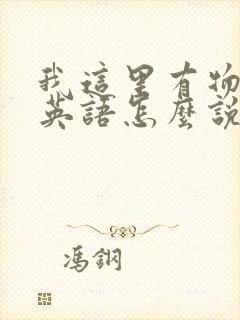 我這里有物
英語怎麼說
馮鋼